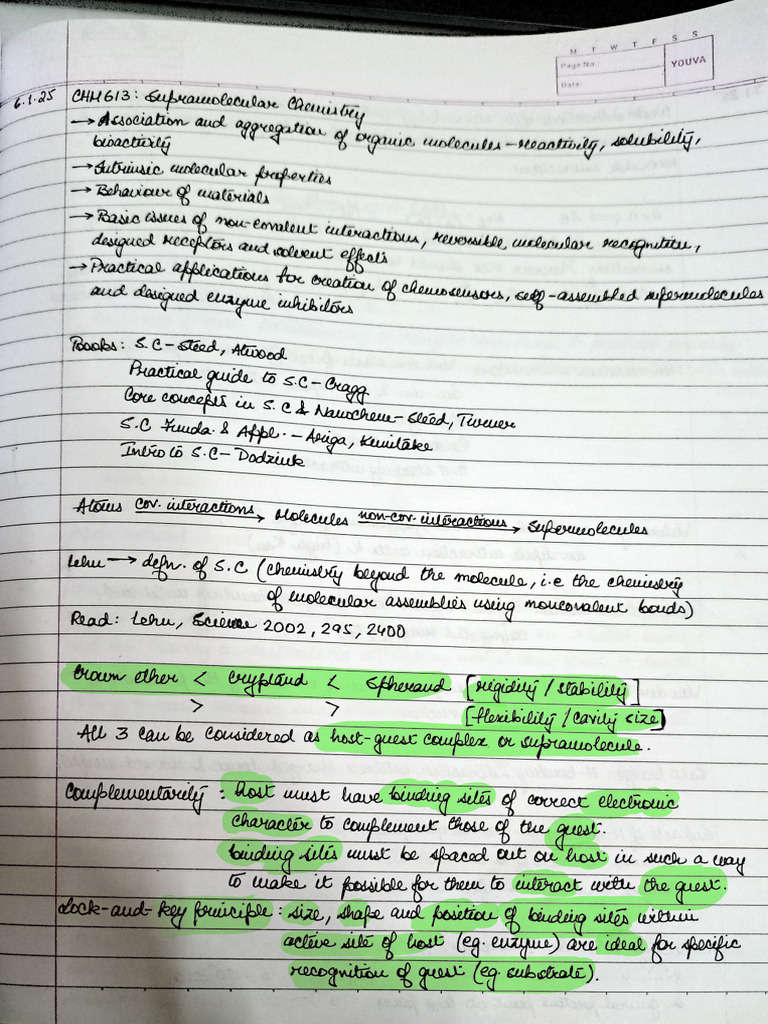 M T W T F S S
Page No.:
YOUVA
Date:
6.1.25 CHM613: Supramolecular Chemistry
→ Association and aggregation of organic molecules - reactivity, solubility,
bioactivity
→ Intrinsic molecular properties
→ Behaviour of materials
→ Basic issues of non-covalent interactions, reversible molecular recognition,
designed receptors and solvent effects
→ Practical applications for creation of chemosensors, self-assembled supermolecules
and designed enzyme inhibitors
Books: S.C - Steed, Atwood
Practical guide to S.C - Cragg
Core concepts in S.C & Nanochem - Steed, Turner
S.C Funda. & Appl. - Ariga, Kunitake
Intro to S.C - Dodziuk
Atoms cov. interactions → Molecules non-cov. interactions → Supermolecules
Lehn → defn. of S.C (chemistry beyond the molecule, i.e the chemistry
of molecular assemblies using noncovalent bonds)
Read: Lehn, Science 2002, 295, 2400
Crown ether < cryptand < spherand [rigidity / stability]
> > [flexibility / cavity size]
All 3 can be considered as host-guest complex or supramolecule.
Complementarity: Host must have binding sites of correct electronic
character to complement those of the guest.
binding sites must be spaced out on host in such a way
to make it possible for them to interact with the guest.
Lock-and-key principle: size, shape and position of binding sites within
active site of host (eg. enzyme) are ideal for specific
recognition of guest (eg. substrate).